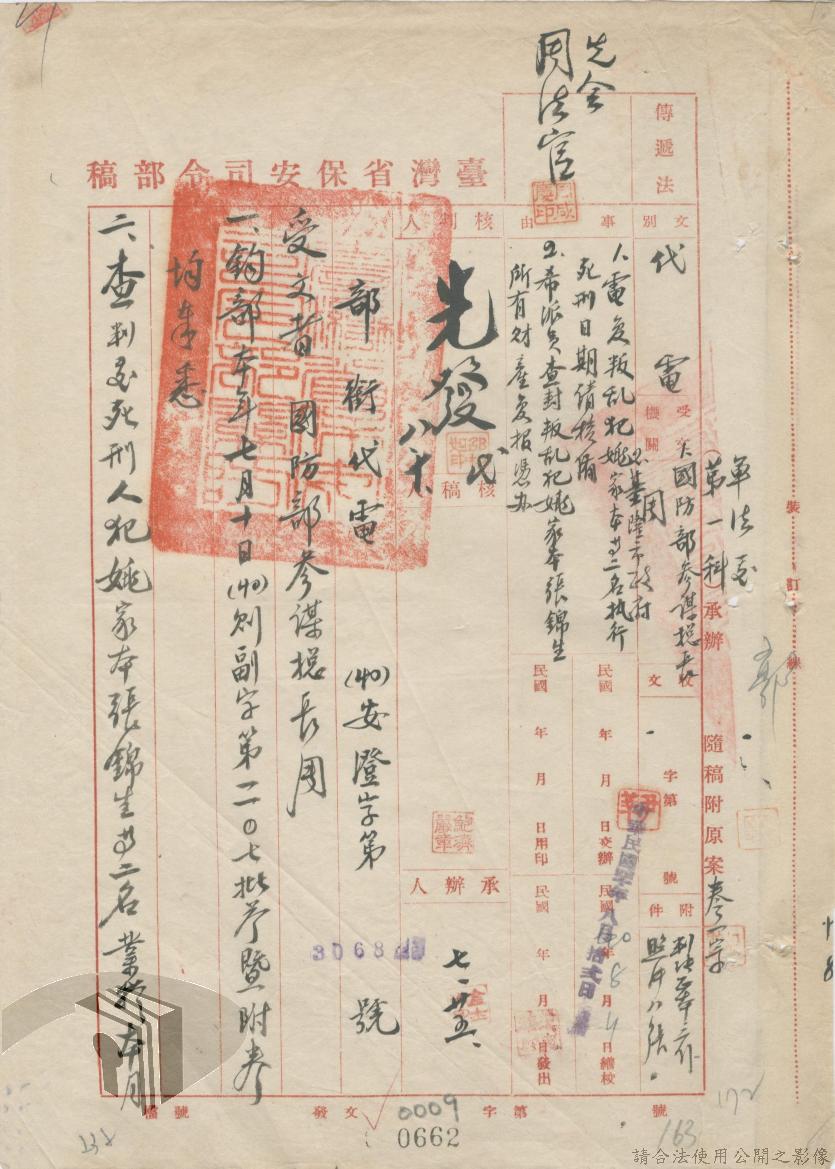 先會
周法官
臺灣省保安司令部稿
傳遞法
軍法處
(第一科)承辦
隨稿附原案叁宗
文別
代電
受文機關
1.國防部參謀總長周
2.基隆市政府
收文
字第
號
附件
事由
1.電复叛乱犯姚家本等二名执行死刑日期請核備
2.希派員查封叛乱犯姚家本張錦生所有財產复报憑办
民國 年 月 日交辦
民國 年 月 日繕校
民國 年 月 日用印
民國 年 月 日發出
中華民國四十年八月拾弍日
40 8 4
核判人
先發
代
八、十、
核稿人
承辦人
七、廿五、
部銜代電
(40)安澄字第
號
3068
受文者 國防部參謀總長周
一、鈞部本年七月十日(40)則副字第一二〇七批答暨附卷
均奉悉
二、查判處死刑人犯姚家本張錦生等二名業於本月
檔號
發文
字第
號
0009
0662
163
172
238
裝
訂
線
請合法使用公開之影像